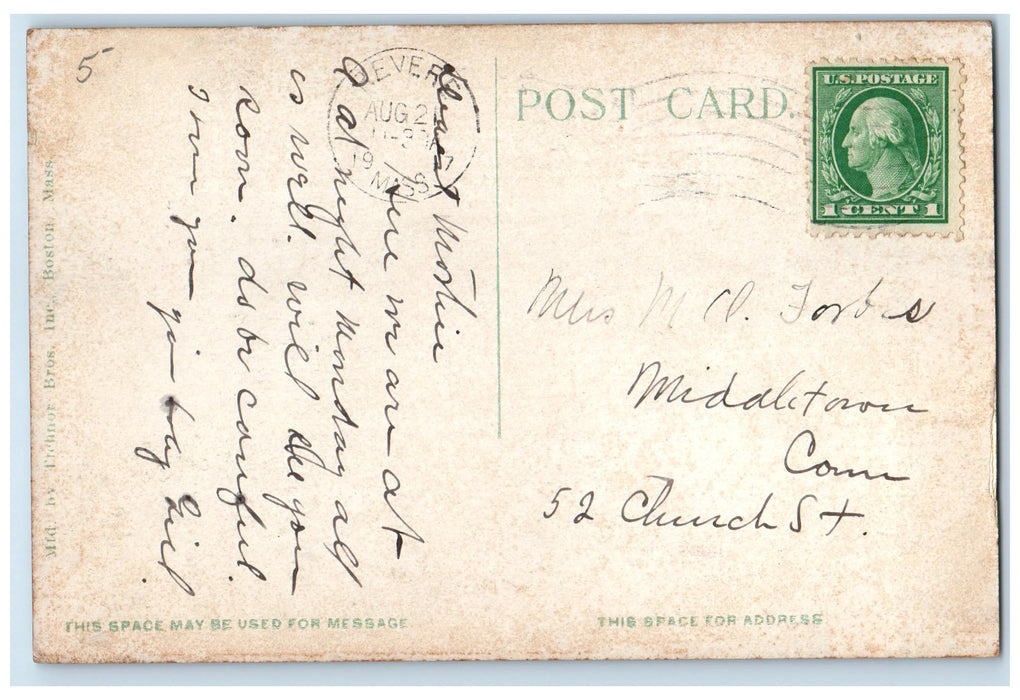 5
BEVERLY
AUG 2
MASS
POST CARD.
U.S. POSTAGE
1 CENT 1
Dearest Mother
here we are at
at night Monday all
is well. will see you
soon. do be careful.
from you big
Mrs M. Forbes
Middletown
Conn
52 Church St.
Mfd. by Tichnor Bros. Inc., Boston, Mass.
THIS SPACE MAY BE USED FOR MESSAGE
THIS SPACE FOR ADDRESS